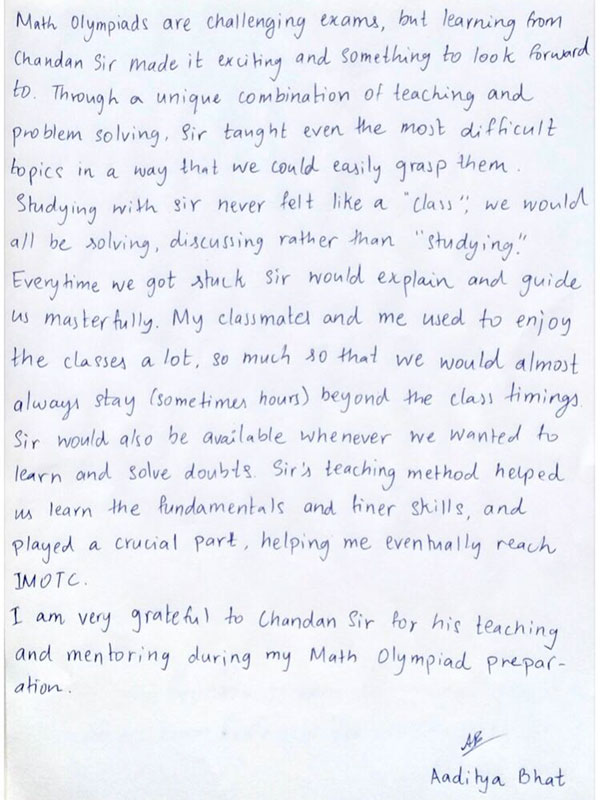 Math Olympiads are challenging exams, but learning from
Chandan Sir made it exciting and something to look forward
to. Through a unique combination of teaching and
problem solving, Sir taught even the most difficult
topics in a way that we could easily grasp them.
Studying with sir never felt like a "class", we would
all be solving, discussing rather than "studying."
Everytime we got stuck Sir would explain and guide
us masterfully. My classmates and me used to enjoy
the classes a lot, so much so that we would almost
always stay (sometimes hours) beyond the class timings.
Sir would also be available whenever we wanted to
learn and solve doubts. Sir's teaching method helped
us learn the fundamentals and finer skills, and
played a crucial part, helping me eventually reach
IMOTC.
I am very grateful to Chandan Sir for his teaching
and mentoring during my Math Olympiad prepar-
ation.
AB
Aaditya Bhat